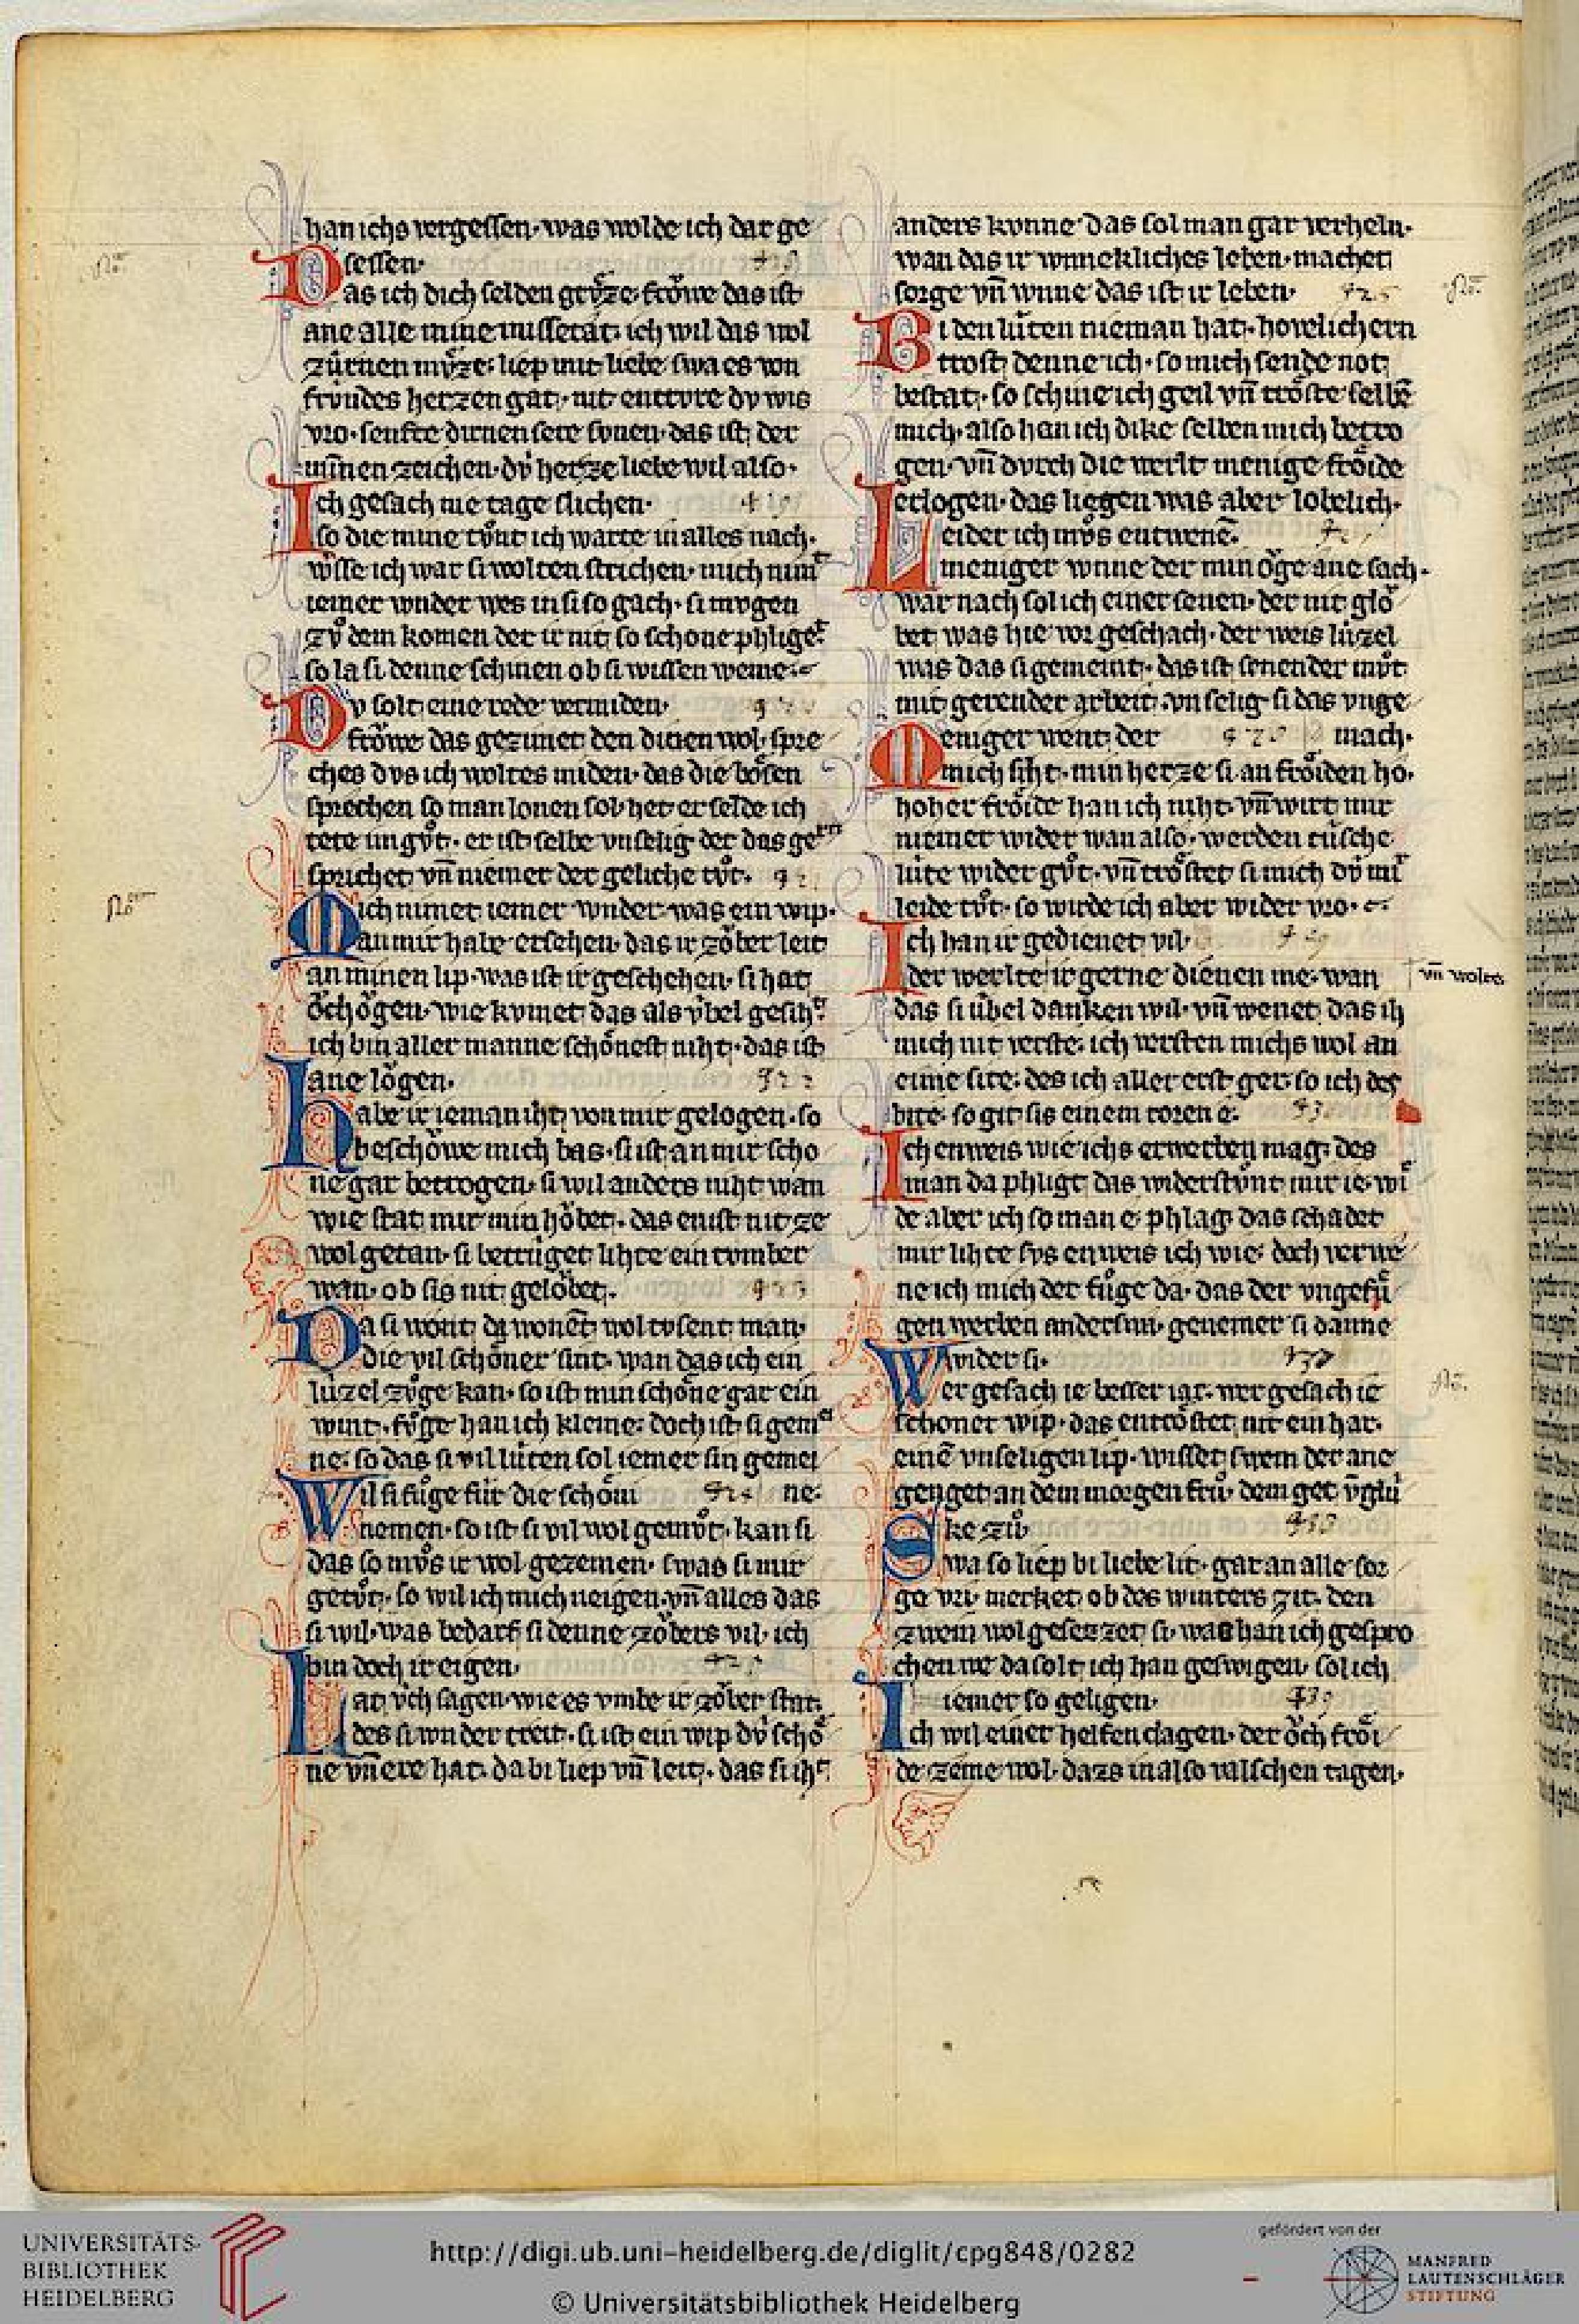 han ichs vergessen· was wolde ich dar ge
sessen·
Das ich dich selden gruͤze· froͮwe das ist
ane alle mine missetat· ich wil das wol
zúrnen muͤze· liep mit liebe· swa es von
frúndes herzen gat· nit entrure du wis
vro· senfte zúrnen sere sv̊nen· das ist der
minnen zeichen· dv́ herze liebe wil also·
Ich gesach nie tage slichen·
so die mine tůnt ich warte in alles nach·
wisse ich war si wolten strichen· mich nimt
iemer wnder wes in si so gach· si mvgen
zů dem komen der ir nit so schone phliget
so la si denne schinen ob si wissen weme
Dv solt eine rede vermiden·
froͮwe das gezimet den dinen wol· spre
ches dvs ich woltes miden· das die boͤsen
sprechen so man lonen sol· her er selde ich
tete im gv̊t· er ist selbe vnselig der das gern
sprichet vn̄ niemer der geliche tv̊t· 421
Mich nimet iemer wnder was ein wip·
an mir habe ersehen· das ir zoͮber leit
an minen lip· was ist ir geschehen· si hat
oͮch oͮgen· wie kvmet das als v́bel gesiht
ich bin aller manne schoͤnest niht· das ist
ane loͮgen· 422
Habe ir ieman iht von mir gelogen· so
beschoͮwe mich bas· si ist an mir scho
ne gar betrogen· si wil anders niht wan
wie stat mir min hoͮbet· das enist nit ze
wol getan· si betrúget lihte ein tvmber
wan· ob sis nit geloͮbet· 423
Da si wont da wonēt wol tvsent man·
die vil schoͤner sint· wan das ich ein
lúzel fv̊ge kan· so ist min schoͤne gar ein
wint· fv̊ge han ich kleine· doch ist si gemei
ne· so das si vil lúten sol iemer sin gemei
Wil si fůge fúr die schoͤni 424 ne·
nemen· so ist si vil wol gemv̊t· kan si
das so mv̊s ir wol gezemen· swas si mir
getv̊t· so wil ich mich neigen· vn̄ alles das
si wil· was bedarf si denne zoͮbers vil· ich
bin doch ir eigen· 425
Lat v́ch sagen· wie es vmbe ir zoͮber stat·
des si wnder treit· si ist ein wip dv́ schoͤ
ne vn̄ ere hat· da bi liep vn̄ leit· das si iht
anders kvnne das sol man gar verheln·
wan das ir wnnekliches leben· machet
sorge vn̄ wnne das ist ir leben·
Bi den lúten nieman hat· hovelichern
trost denne ich· so mich sende not
bestat· so schine ich geil vn̄ troͤste selbē
mich· also han ich dike selben mich betro
gen· vn̄ dvrch die werlt menige froͤide
erlogen· das liegen was aber lobelich·
Leider ich mv̊s entwenē·
meniger wnne der min oͮge ane sach·
war nach sol ich einer senen· der nit gloͮ
bet was hie vor geschach· der weis lúzel
was das si gemeint· das ist senender mv̊t
mit gerender arbeit· vnselig si das vnge
Meniger wenet der 428 mach·
mich siht· min herze si an froͤiden ho·
hoher froͤide han ich niht· vn̄ wirt mir
niemer wider wan also· werden túsche
lúte wider gv̊t· vn̄ troͤstet si mich dv́ mir
leide tv̊t· so wirde ich aber wider vro·
Ich han ir gedienet vil· 429
der werlte ir gerne dienen me· wan
vn̄ wolte
das si úbel danken wil· vn̄ wenet das ih
mich nit verste· ich versten michs wol an
eime site· des ich aller erst ger· so ich des
bite· so git sis einem toren e· 430
Ichn weis wie ichs erwerben mag· des
man da phligt das widerstv̊nt mir ie· wir
de aber ich so man e phlag· das schadet
mir lihte svs enweis ich wie· doch verwe
ne ich mich der fůge da· das der vngefů
gen werben anderswa· genemer si danne
wider si·
Wer gesach ie besser iar· wer gesach ie
schoner wip· das entroͤstet nit ein har·
einē vnseligen lip· wisset swem der ane
genget an dem morgen frů· dem get vnglú
ke zů·
Swa so liep bi liebe lit· gar an alle sor
ge vri· merket ob des winters zit· den
zwein wol gesezzet si· was han ich gespro
chen we da solt ich han geswigen· sol ich
iemer so geligen·
Ich wil einer helfen clagen· der oͮch froͤi
de zeme wol· dazs in also valschen tagen·
UNIVERSITÄTS-
BIBLIOTHEK
HEIDELBERG
http://digi.ub.uni-heidelberg.de/diglit/cpg848/0282
© Universitätsbibliothek Heidelberg
gefördert von der
MANFRED
LAUTENSCHLÄGER
STIFTUNG